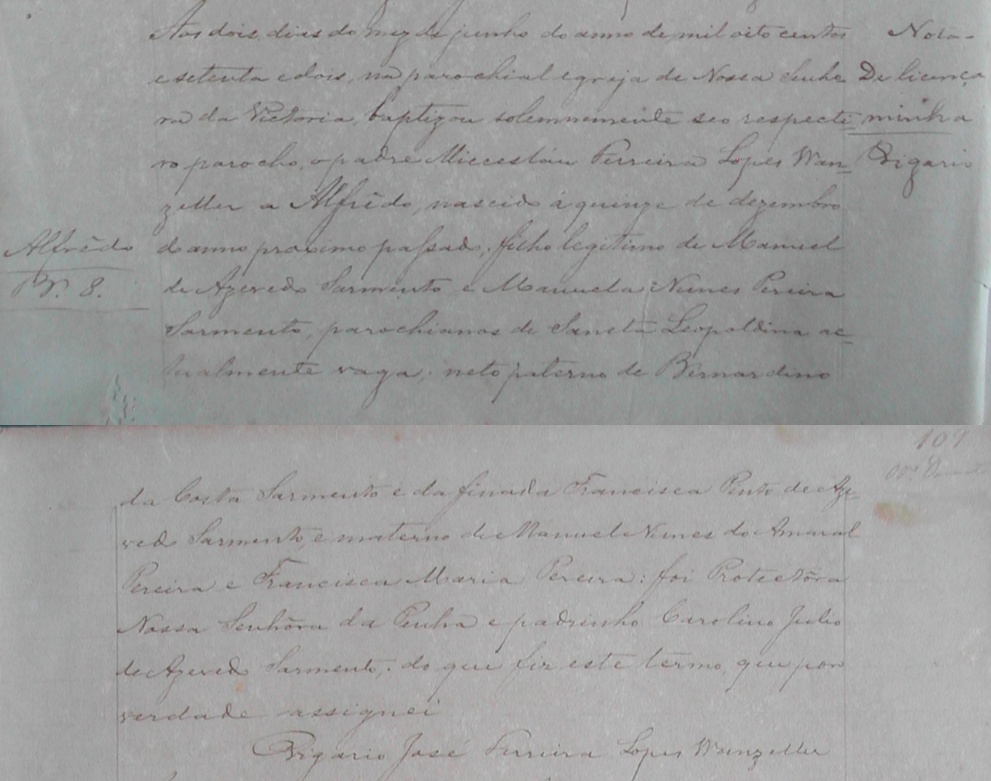 Aos dois dias do mez de junho do anno de mil oito centos
e setenta e dois, na parochial egreja de Nossa Senho
ra da Victoria, baptizou solemnemente seo respecti-
vo parocho, o padre Ferreira Lopes Wan-
zeller a Alfrêdo, nascido á quinze de dezembro
do anno proximo passado; filho legitimo de Manuel
de Azevedo Sarmento e Manuela Nunes Pereira
Sarmento, parochianos de Sancta Leopoldina ac-
tualmente vaga; neto paterno de Bernardino
Nota-
De licença
minha
Vigario
Alfrêdo
Nº. 8.
107
da Costa Sarmento e da finada Francisca Pinto de Aze-
vedo Sarmento, e materno de Manuel Nunes do Amaral
Pereira e Francisca Maria Pereira: foi Protectôra
Nossa Senhôra da Penha e padrinho Carolino Julio
de Azevedo Sarmento: do que fiz este termo, que por
verdade assignei
Vigario José Ferreira Lopes Wanzeller